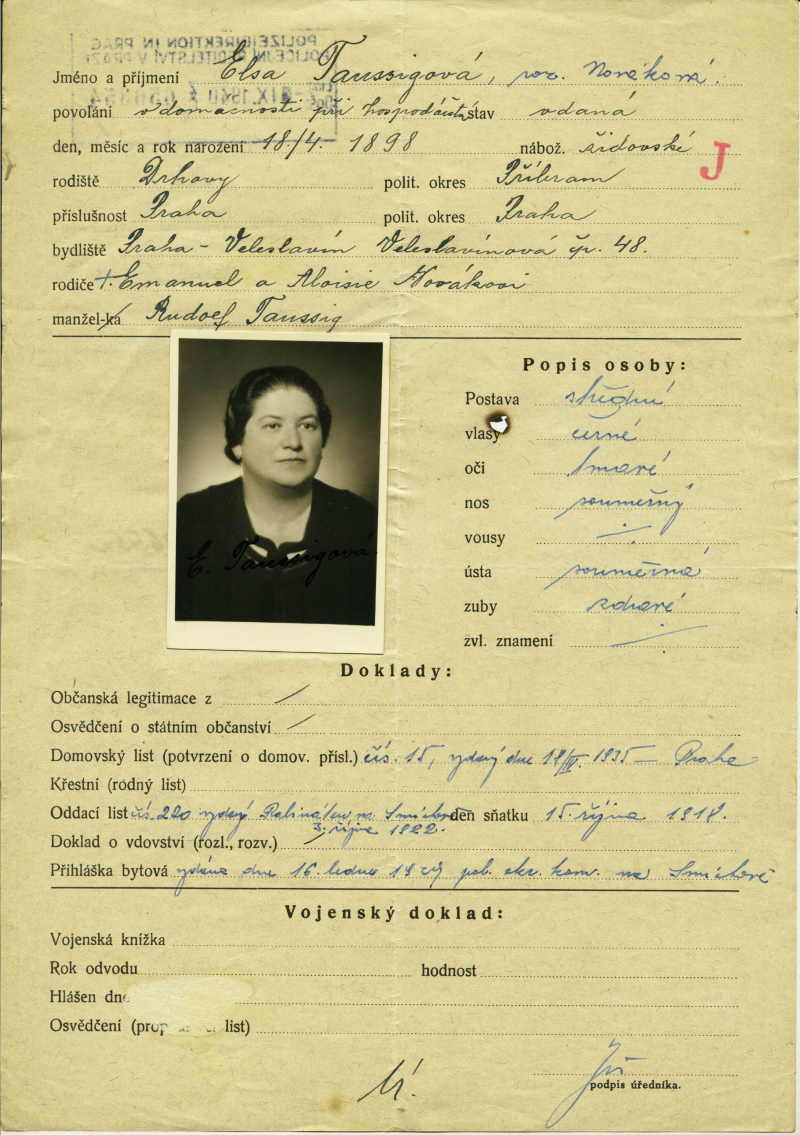 POLIZEIDIREKTION IN PRAG
POLICEJNÍ ŘEDITELSTVÍ V PRAZE
Jméno a příjmení Elsa Taussigová, roz. Nováková.
povolání v domacnosti při hospodářst. stav vdaná
den, měsíc a rok narození 18./4. 1898 nábož. židovské
J
rodiště Drhovy polit. okres Příbram
příslušnost Praha polit. okres Praha
bydliště Praha - Veleslavín Veleslavínová čp. 48.
rodiče †. Emanuel a Aloisie Novákovi
manžel-ka Rudolf Taussig
E. Taussigová
Popis osoby:
Postava střední
vlasy černé
oči tmavé
nos souměrný
vousy
ústa souměrná
zuby zdravé
zvl. znamení
Doklady:
Občanská legitimace z
Osvědčení o státním občanství
Domovský list (potvrzení o domov. přísl.) čís. 15, vydaný dne 1935 - Praha
Křestní (rodný list)
Oddací list čís. 220 vydaný na Smíchově den sňatku 15. října 1918.
3. října 1922.
Doklad o vdovství (rozl., rozv.)
Přihláška bytová vydána dne 16. ledna pol. kom. na Smíchově
Vojenský doklad:
Vojenská knížka
Rok odvodu hodnost
Hlášen dne
Osvědčení list)
podpis úředníka.